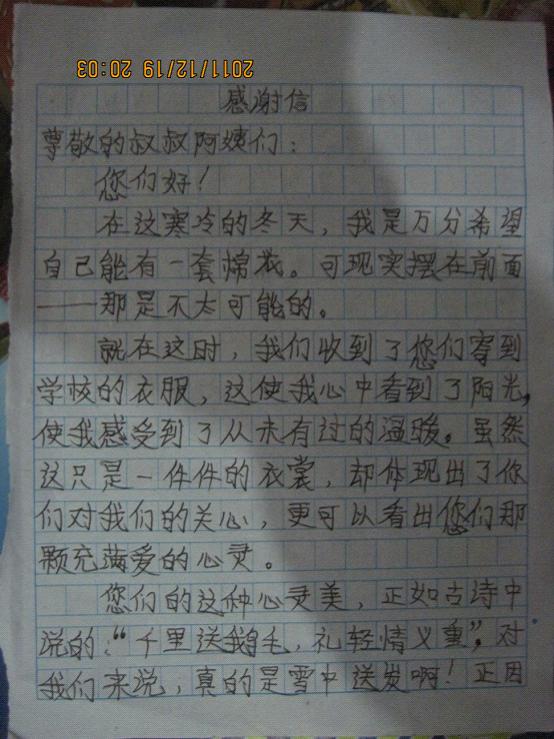 2011/12/19 20:03
感谢信
尊敬的叔叔阿姨们：
您们好！
在这寒冷的冬天，我是万分希望
自己能有一套棉衣。可现实摆在前面
——那是不太可能的。
就在这时，我们收到了您们寄到
学校的衣服，这使我心中看到了阳光，
使我感受到了从未有过的温暖。虽然
这只是一件件的衣裳，却体现出了你
们对我们的关心，更可以看出您们那
颗充满爱的心灵。
您们的这种心灵美，正如古诗中
说的：“千里送鹅毛，礼轻情义重”，对
我们来说，真的是雪中送发啊！正因